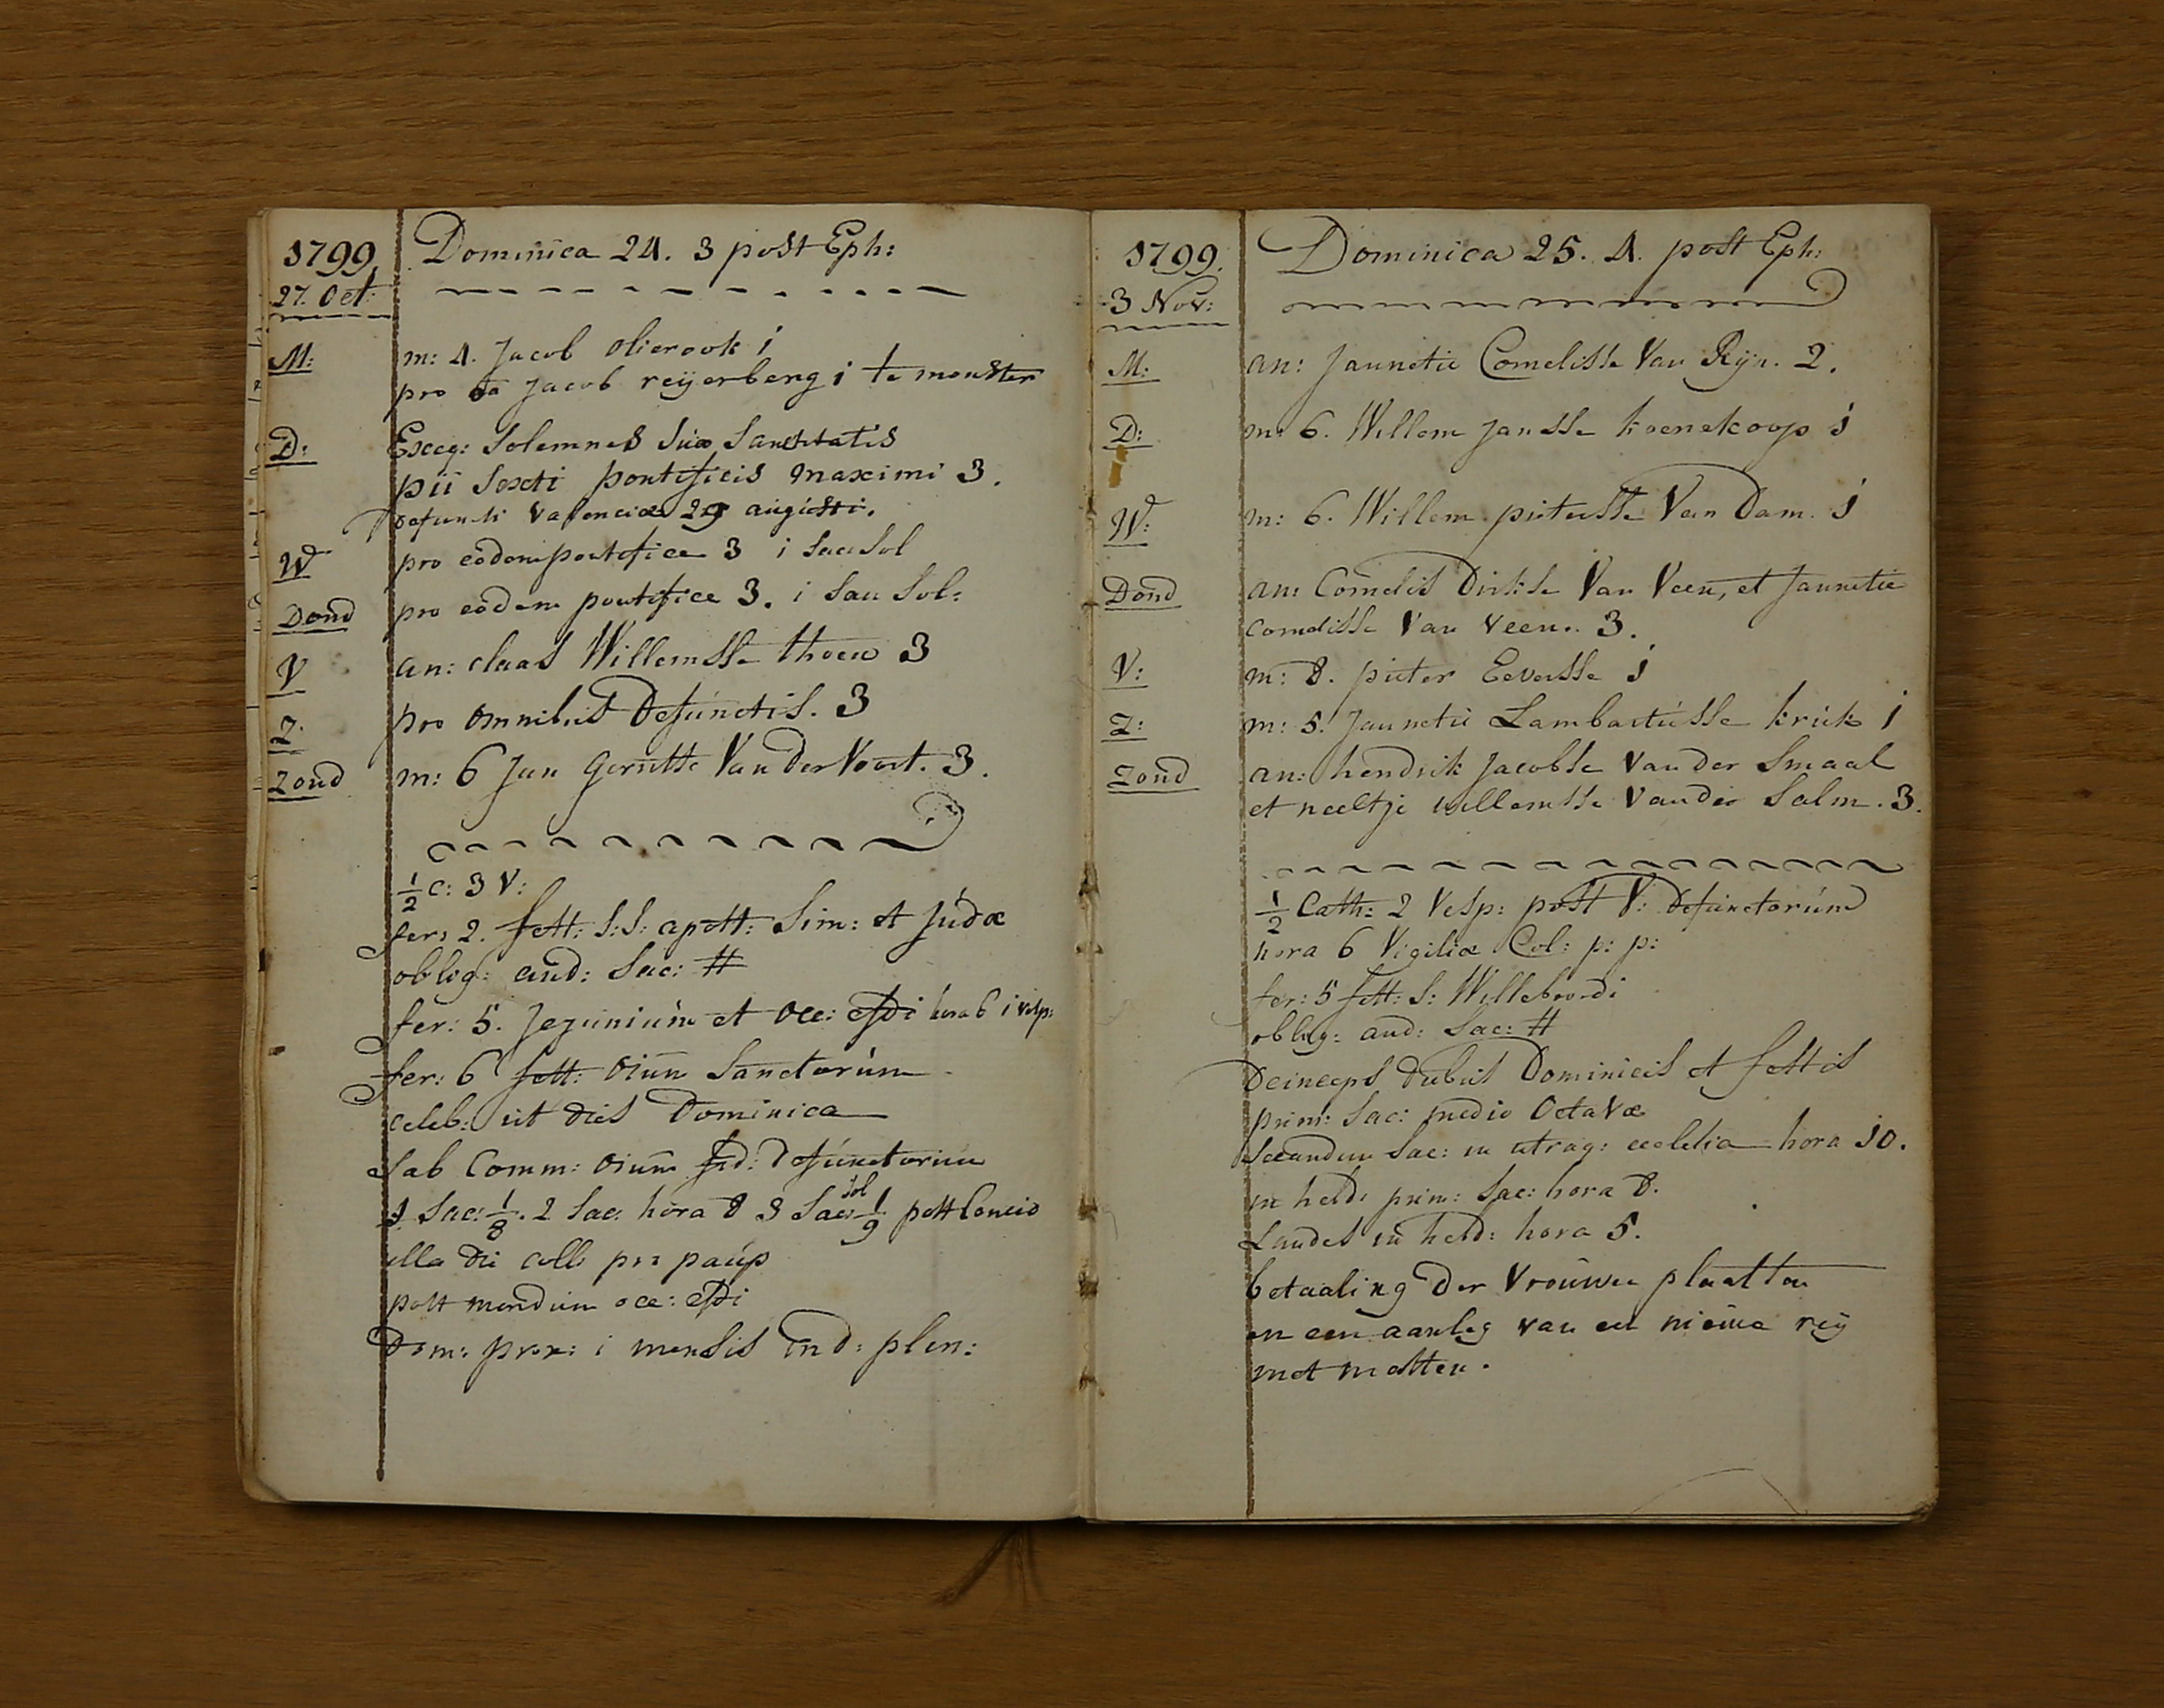 1799
27. Oct:
Dominica 24. 3 post Eph:
M: m: 4. Jacob olierook 1
pro da Jacob reijerberg 1 te monster
D: Exeq: Solemnes Suæ Sanctitatis
pii Sexti pontificis maximi 3.
defuncti Valenciæ 29 augusti.
W pro eodem pontifice 3 i Sac Sol
Dond pro eodem pontifice 3. i Sac Sol:
V an: claas Willemsse thoen 3
Z. pro omnibus Defunctis. 3
Zond m: 6 Jan Gerritse Van Der Voort. 3.
½ C: 3 V:
fer: 2. fest: S:S: apost: Sim: et Judæ
oblig: aud: Sac: #
fer: 5. Jejunium et occ: csdi hora 6 i vesp:
fer: 6 fest: oium Sanctorum
celeb: ut dies Dominica
Sab Comm: oium fid: Defunctorum
1 Sac: 1/8. 2 Sac: hora 8 3 Sac: sol 1/9 post Concio
illa die coll: pro paup
post mendum occ: csdi
Dom: prox: i mensis Ind: plen:
1799.
3 Nov:
Dominica 25. 4. post Eph:
M: an: Jannetie Cornelisse Van Rijn. 2.
D: m: 6. Willem Jansse koenekoop 1
W: m: 6. Willem pieterse Van Dam. 1
Dond an: Cornelis Dirkse Van Veen, et Jannetie
cornelisse Van Veen. 3.
V: m: 8. pieter Eeversse 1
Z: m: 5. Jannetie Lambartusse kruk 1
Zond an: hendrik Jacobse Van der Smaal
et neeltje willemsse Van der Salm. 3.
½ Cath: 2 Vesp: post V: Defunctorum
hora 6 Vigiliæ Col: p: p:
fer: 5 fest: S: Willebrordi
oblig: aud: Sac: #
Deinceps diebus Dominicis et festis
prim: Sac: medio Octavæ
Secundum Sac: in utraq: ecclesia hora 10.
in held: prim: Sac: hora 8.
Laudes in held: hora 5.
betaaling Der Vrouwe plaatsen
en een aanleg van een nieuwe reij
met matten.